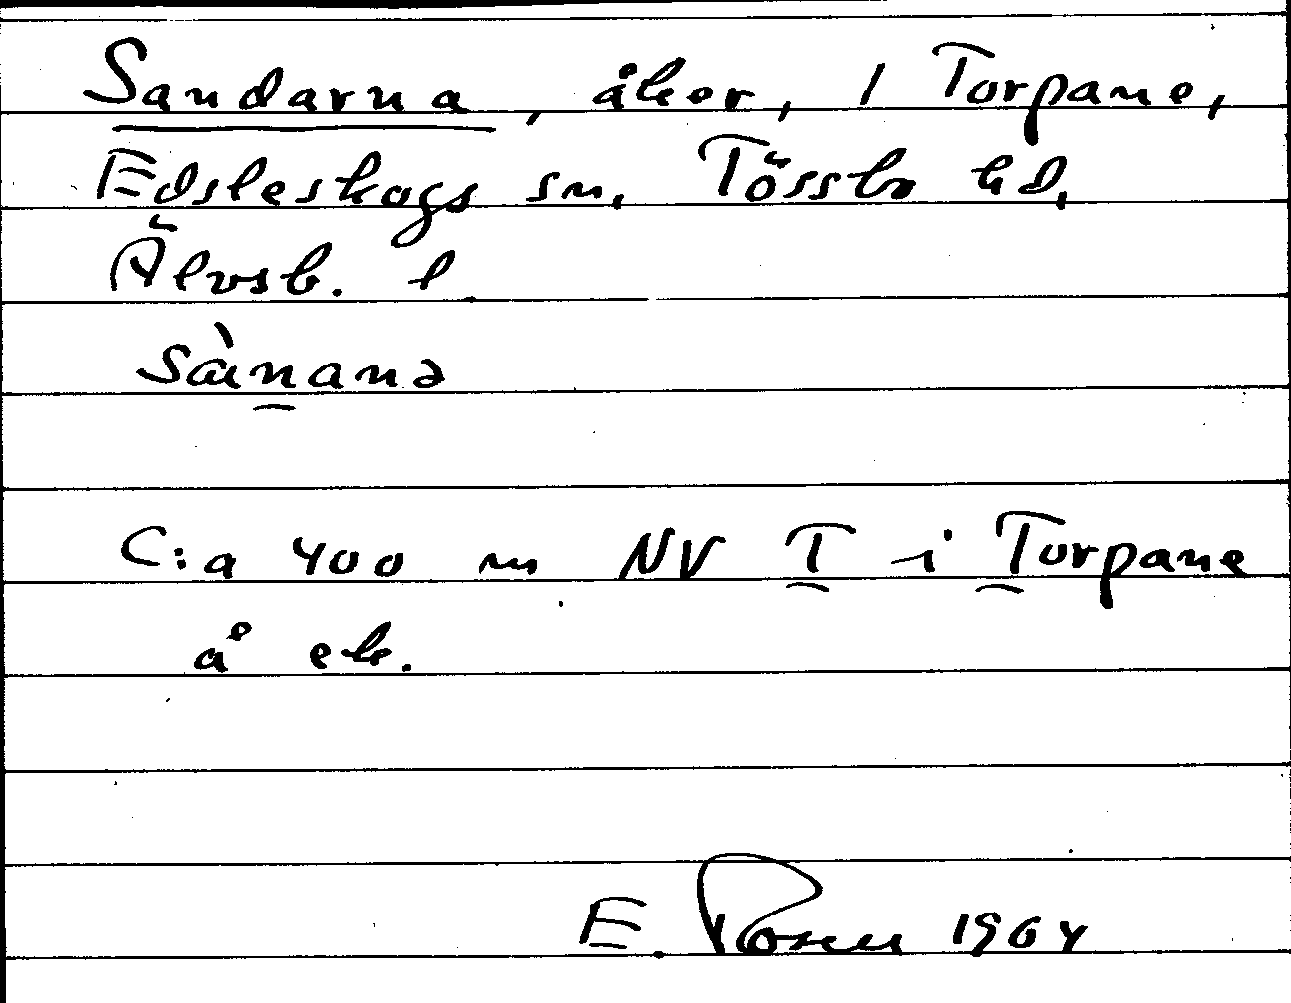 Sandarna, åker, 1 Torpane,
Edsleskogs sn, Tössbo hd,
Älvsb. l
Sànanə
C:a 400 m NV T i Torpane
å ek.
E. Rosen 1964